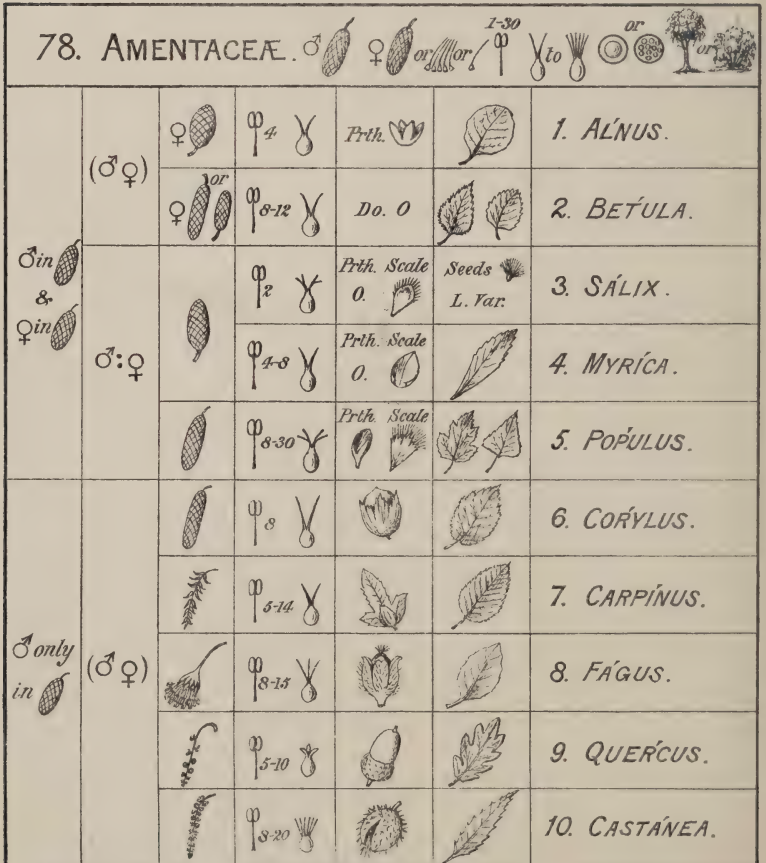 78. AMENTACEÆ. ♂ ♀ or or 1-30 to or or
♂ in & ♀ in
(♂♀)
♀ 4 Prth. 1. AĹNUS.
♀ or 8-12 Do. O 2. BET́ULA.
♂:♀
2 Prth. Scale O. Seeds L. Var. 3. SÁLIX.
4-8 Prth. Scale O. 4. MYRÍCA.
8-30 Prth. Scale 5. POṔULUS.
♂ only in
(♂♀)
8 6. COŔYLUS.
5-14 7. CARPÍNUS.
8-15 8. FÁGUS.
5-10 9. QUEŔCUS.
8-20 10. CASTÁNEA.